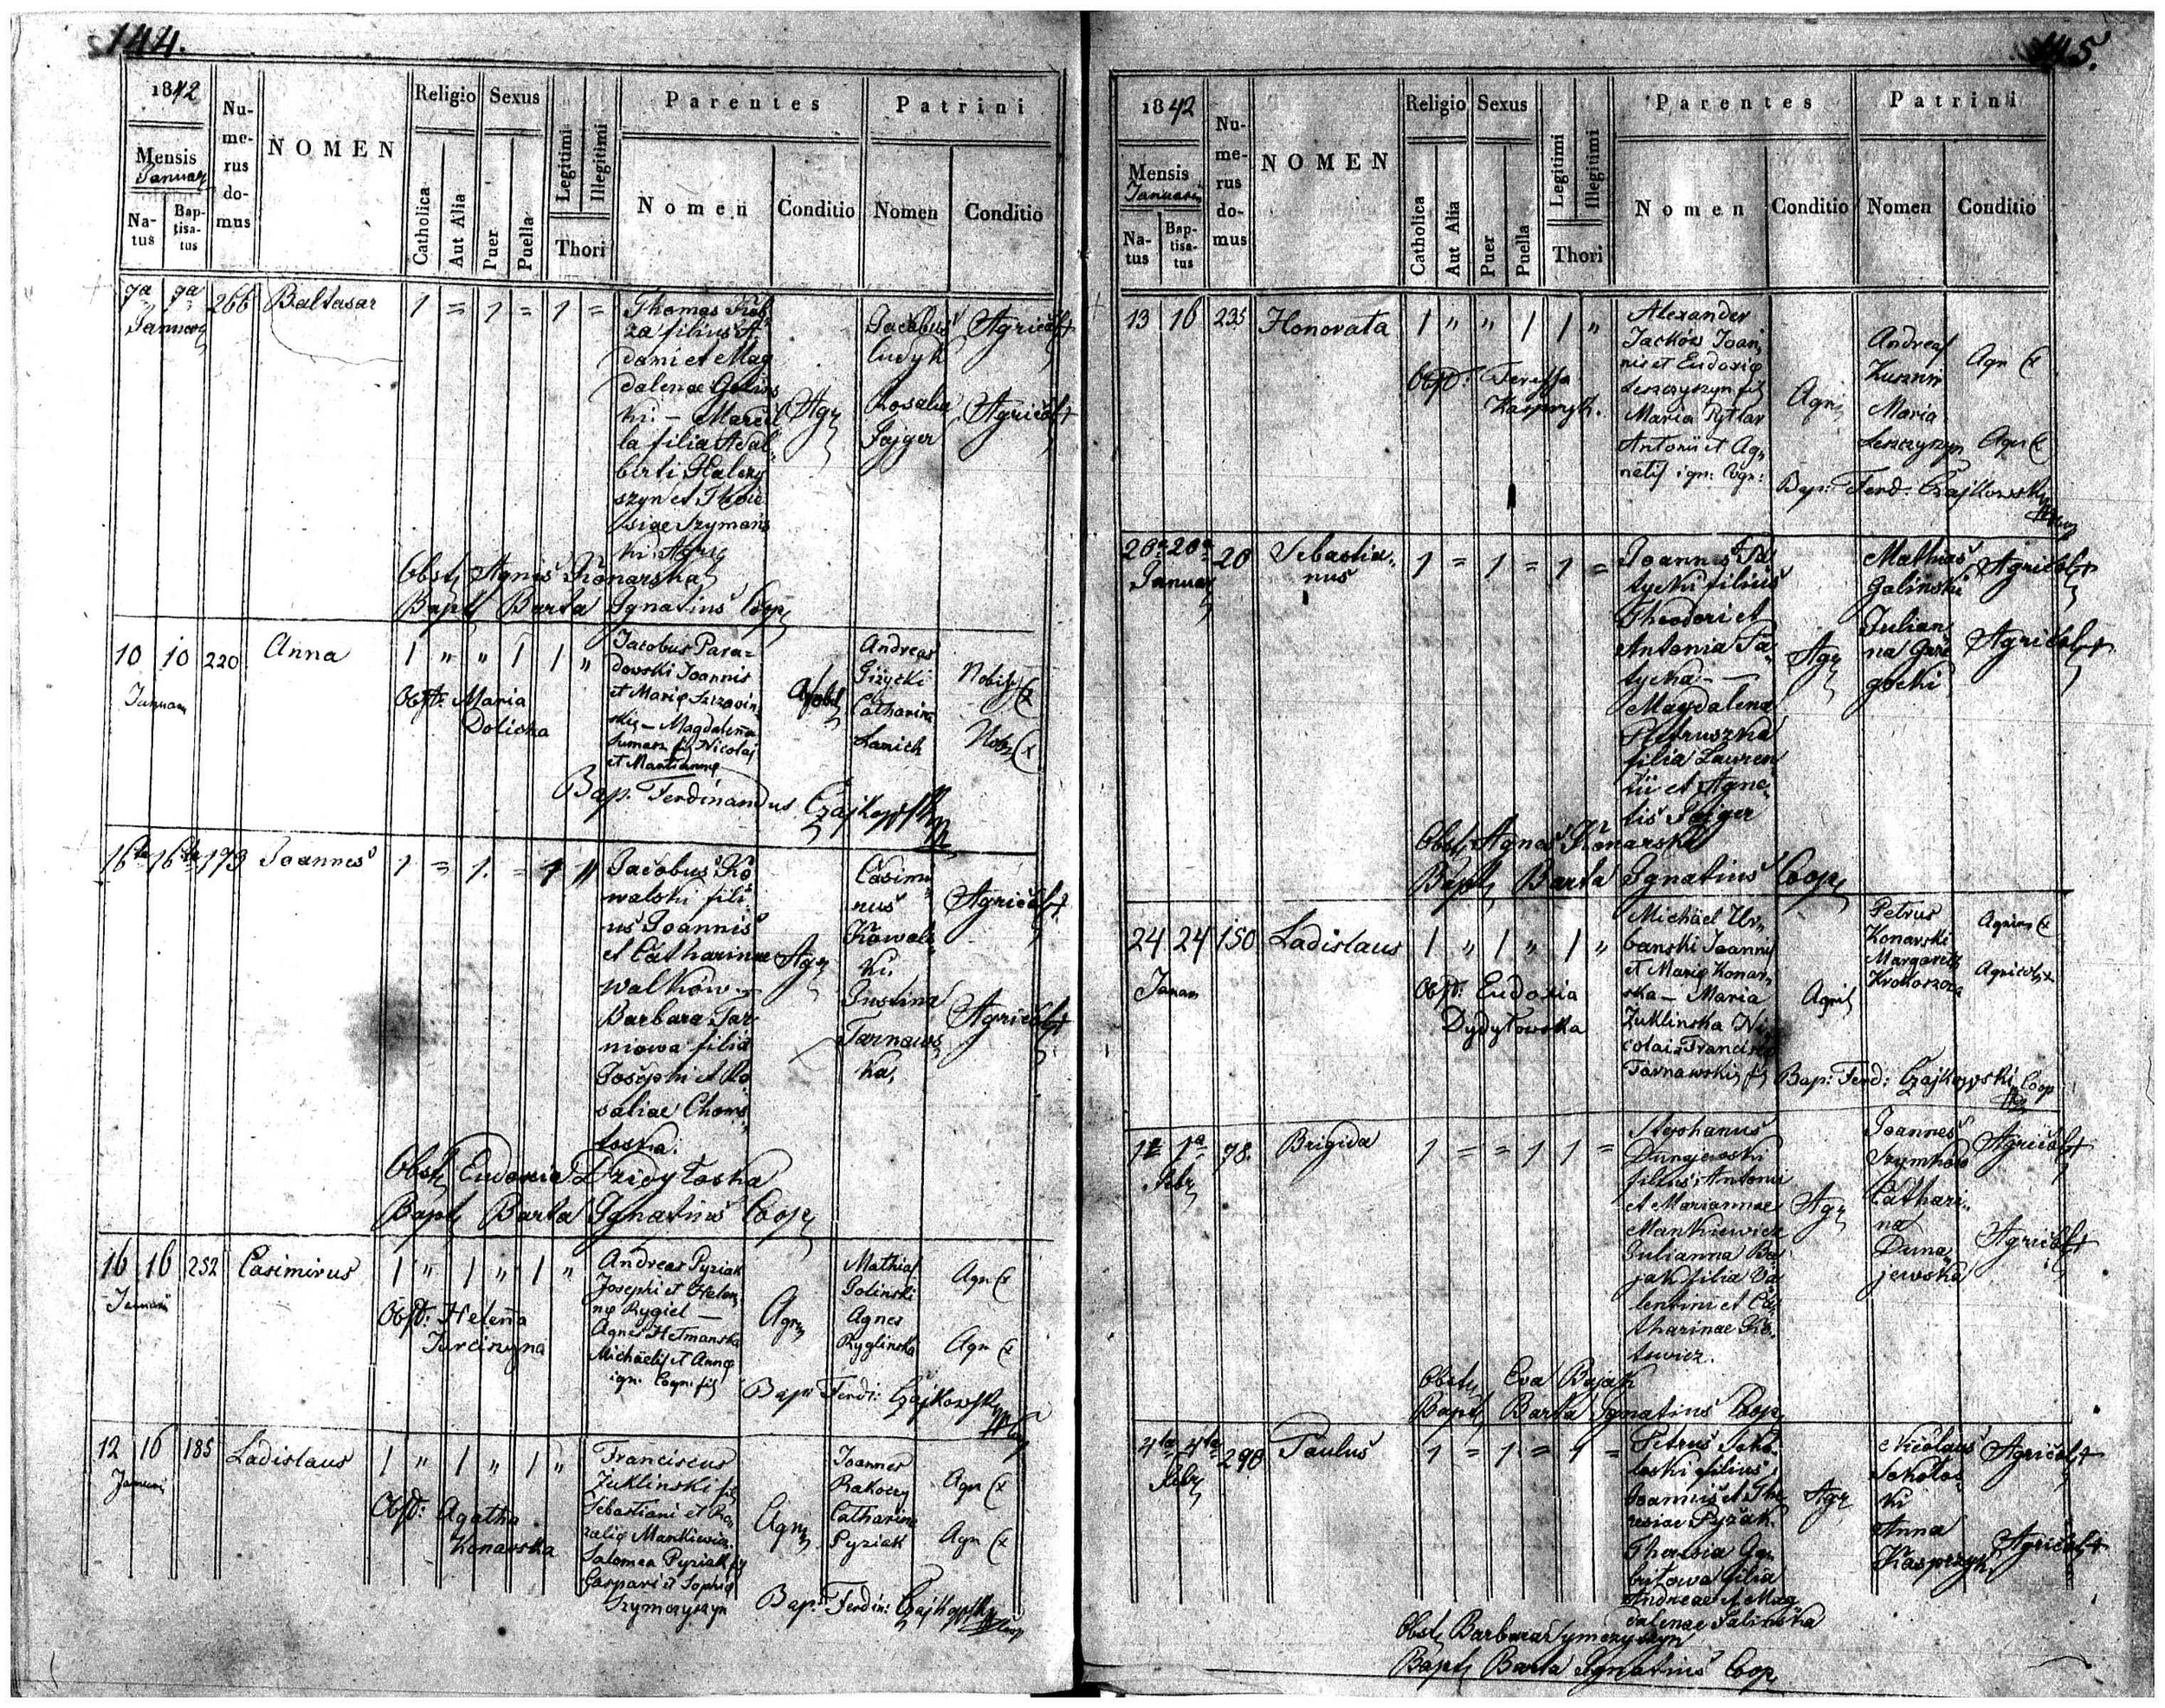 144.
1842
Mensis
Januar
Natus
Baptisatus
Numerus domus
NOMEN
Religio
Catholica
Aut Alia
Sexus
Puer
Puella
Legitimi
Illegitimi
Thori
Parentes
Nomen
Conditio
Patrini
Nomen
Conditio
9a 9a 266 Baltasar 1 = 1 = 1 =
Januar
Thomas
za filius A
dami et Mag
dalenae Golins
ki. – Marcil
la filia Adal
berti Haleczy
szyn et
siae Szymańs
ki Agric
Agr
Jacobus
Rosalia
Jajger
Agricol +
Agricol +
Obst Agnes Konarska
Bapt Barta Ignatius Coop
10 10 220 Anna 1 " " 1 1 "
Januar
Obst: Maria
Dolicka
Jacobus Para-
dowski Joannis
et Marię Szczawin
skię – Magdalena
fil Nicolai
et Mariannę
Andreas
Giżycki
Catharina
Lanich
Nobil (x
Nob (x
Bap. Ferdinandus Czajkowski
16ta 16ta 173 Joannes 1 = 1. = 1 "
Jacobus Ko
walski fili
us Joannis
et Catharinae
Walków –
Barbara Tar
niowa filia
Josephi et Ro
saliae Choms
toska.
Agr
Casimi
rus
Kowals
ki.
Justina
Tarnaws
ka,
Agricol +
Agricol +
Obst Eudoxia Dzidyłoska
Bapt Barta Ignatius Coop
16 16 252 Casimirus 1 " 1 " 1 "
Januarii
Obst: Helena
Jurciszyna
Andreas Pyziak
Josephi et Helen
nę Rygiel –
Agnes Hetmanska
Michäelis et Annę
ign. Cogn. fil
Agr
Mathias
Golinski
Agnes
Ryglinska
Agr (x
Agr (x
Bap: Ferdi: Czajkowski
12 16 185 Ladislaus 1 " 1 " 1 "
Januari
Obst: Agatha
Konarska
Franciscus
Żuklinski fil
Sebastiani et Ro
zalię Mankiewicz
Salomea Pyziak
Caspari et Sophię
Szymczyszyn
Agr
Joannes
Rakoczy
Catharina
Pyziak
Agr (x
Agr (x
Bap: Ferdin: Czajkowski Coop
145.
1842
Mensis
Januarii
Natus
Baptisatus
Numerus domus
NOMEN
Religio
Catholica
Aut Alia
Sexus
Puer
Puella
Legitimi
Illegitimi
Thori
Parentes
Nomen
Conditio
Patrini
Nomen
Conditio
13 16 235 Honorata 1 " " 1 1 "
Obst: Teressa
Kasprzyk.
Alexander
Jacków Joan,
nis et Eudoxię
Leszczyszyn fil
Maria Pytlar
Antonii et Ag,
netis ign: Cogn:
Agr
Andreas
Kusznir
Maria
Leszczyszyn
Agr (x
Agr (x
Bap: Ferd. Czajkowski
20a 20a 20 Sebastia,
nus 1 = 1 = 1 =
Januar
Joannes Ta
tycki filius
Theodori et
Antonia Ta
tycka –
Magdalena
Pietruszka
filia Lauren
tii et Agne
tis Pajger
Agr
Mathias
Galinski
Julian
na
gocki
Agricol +
Agricol +
Obst Agnes Konarska
Bapt Barta Ignatius Coop
24 24 150 Ladislaus 1 " 1 " 1 "
Januar
Obst: Eudoxia
Dydyłowska
Michäel Ur,
banski Joannis
et Marię Konar,
ska – Maria
Żuklinska Ni
colai Francisce
Tarnawski fil
Agril
Petrus
Konarski
Margareth
Krokoszona
Agricol (x
Agricol (x
Bap: Ferd: Czajkowski Coop
1a 1a 98. Brigida 1 = = 1 1 =
Febr
Stephanus
Dunajewski
filius Antonii
et Mariannae
Mankiewicz
Julianna Ba
jak filia Va
lentini et Ca
tharinae Ko
towicz.
Agr
Joannes
Szymków
Cathari,
na
Duna
jewska
Agricol +
Agricol +
Obst Eva Bajak
Bapt Barta Ignatius Coop
4ta 4ta 290 Paulus 1 = 1. = 1 =
Febr
Petrus Soko
łoski filius
Joannis et The
resiae Pyzak.
Theresia Ga,
britowa filia
Andreae et Mag
dalenae Salinska
Agr
Nicolaus
Sokołos
ki
Anna
Kasprzyk
Agricol +
Agricol +
Obst Barbara Symczyszyn
Bapt Barta Ignatius Coop